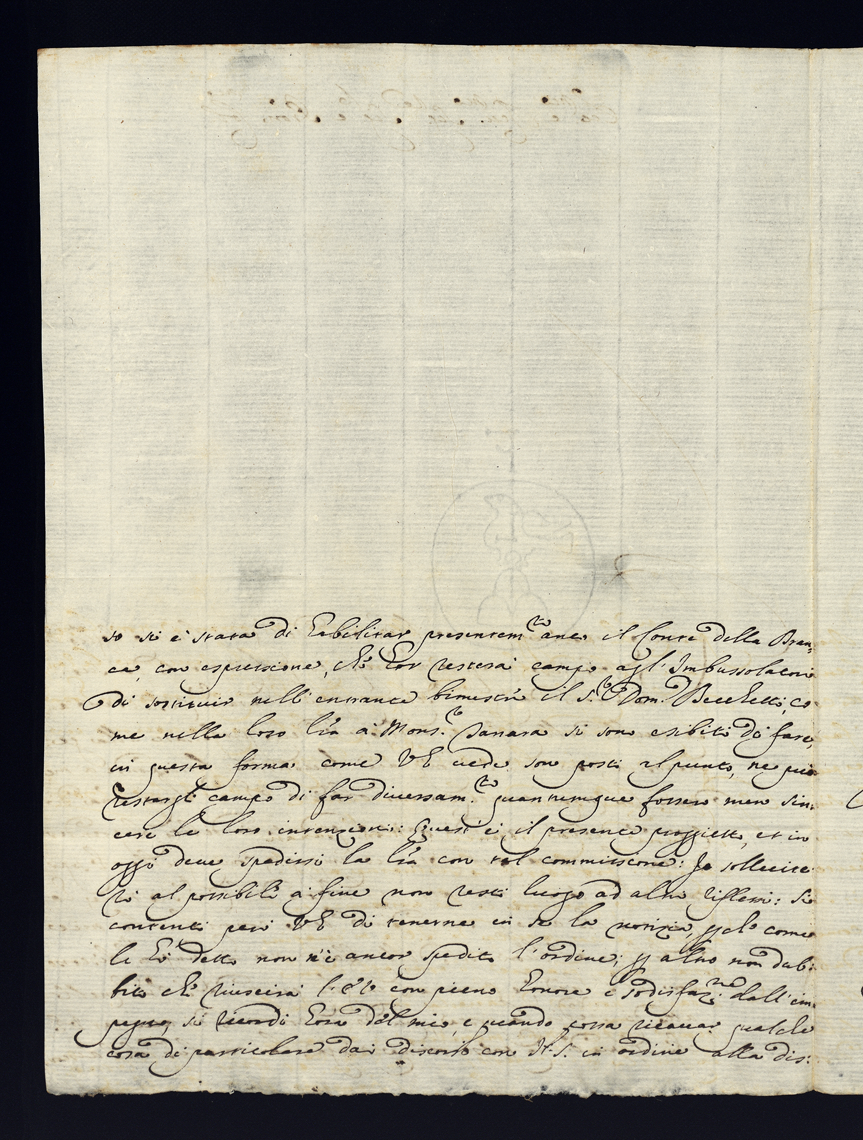 so si è statta di habilitar presentem.te anco il Conte della Bran:
ca, con espressione, che hor resterà campo agl'Imbussolatori
di sostituir nell'entrante bimestre il S.r Dom.co Becchetti, co
me nella loro l'ra à Mons.r Sanara si sono esibiti di fare,
in questa forma come VE vede sono posti al punto, ne può
restargli campo di far diversam.te quantunque fossero men sin:
cere le loro intenzioni: Quest'è il presente proggietto, et in
oggi deve spedirsi la l'ra con tal commissione: Io sollecite
rò al possibile à fine non resti luogo ad altri riflessi: Si
contenti però VE di tenerne in se la notizia, p che come
le hò detto non n'è ancor spedito l'ordine; p altro non dub:
bito che riuscirà con pieno honore e sodisfaz.ne dall'im:
pegno, si ricordi hora del mio, e quando possa ricavar qualche
cosa di particolare dai discorsi con N.S. in ordine alla dis: